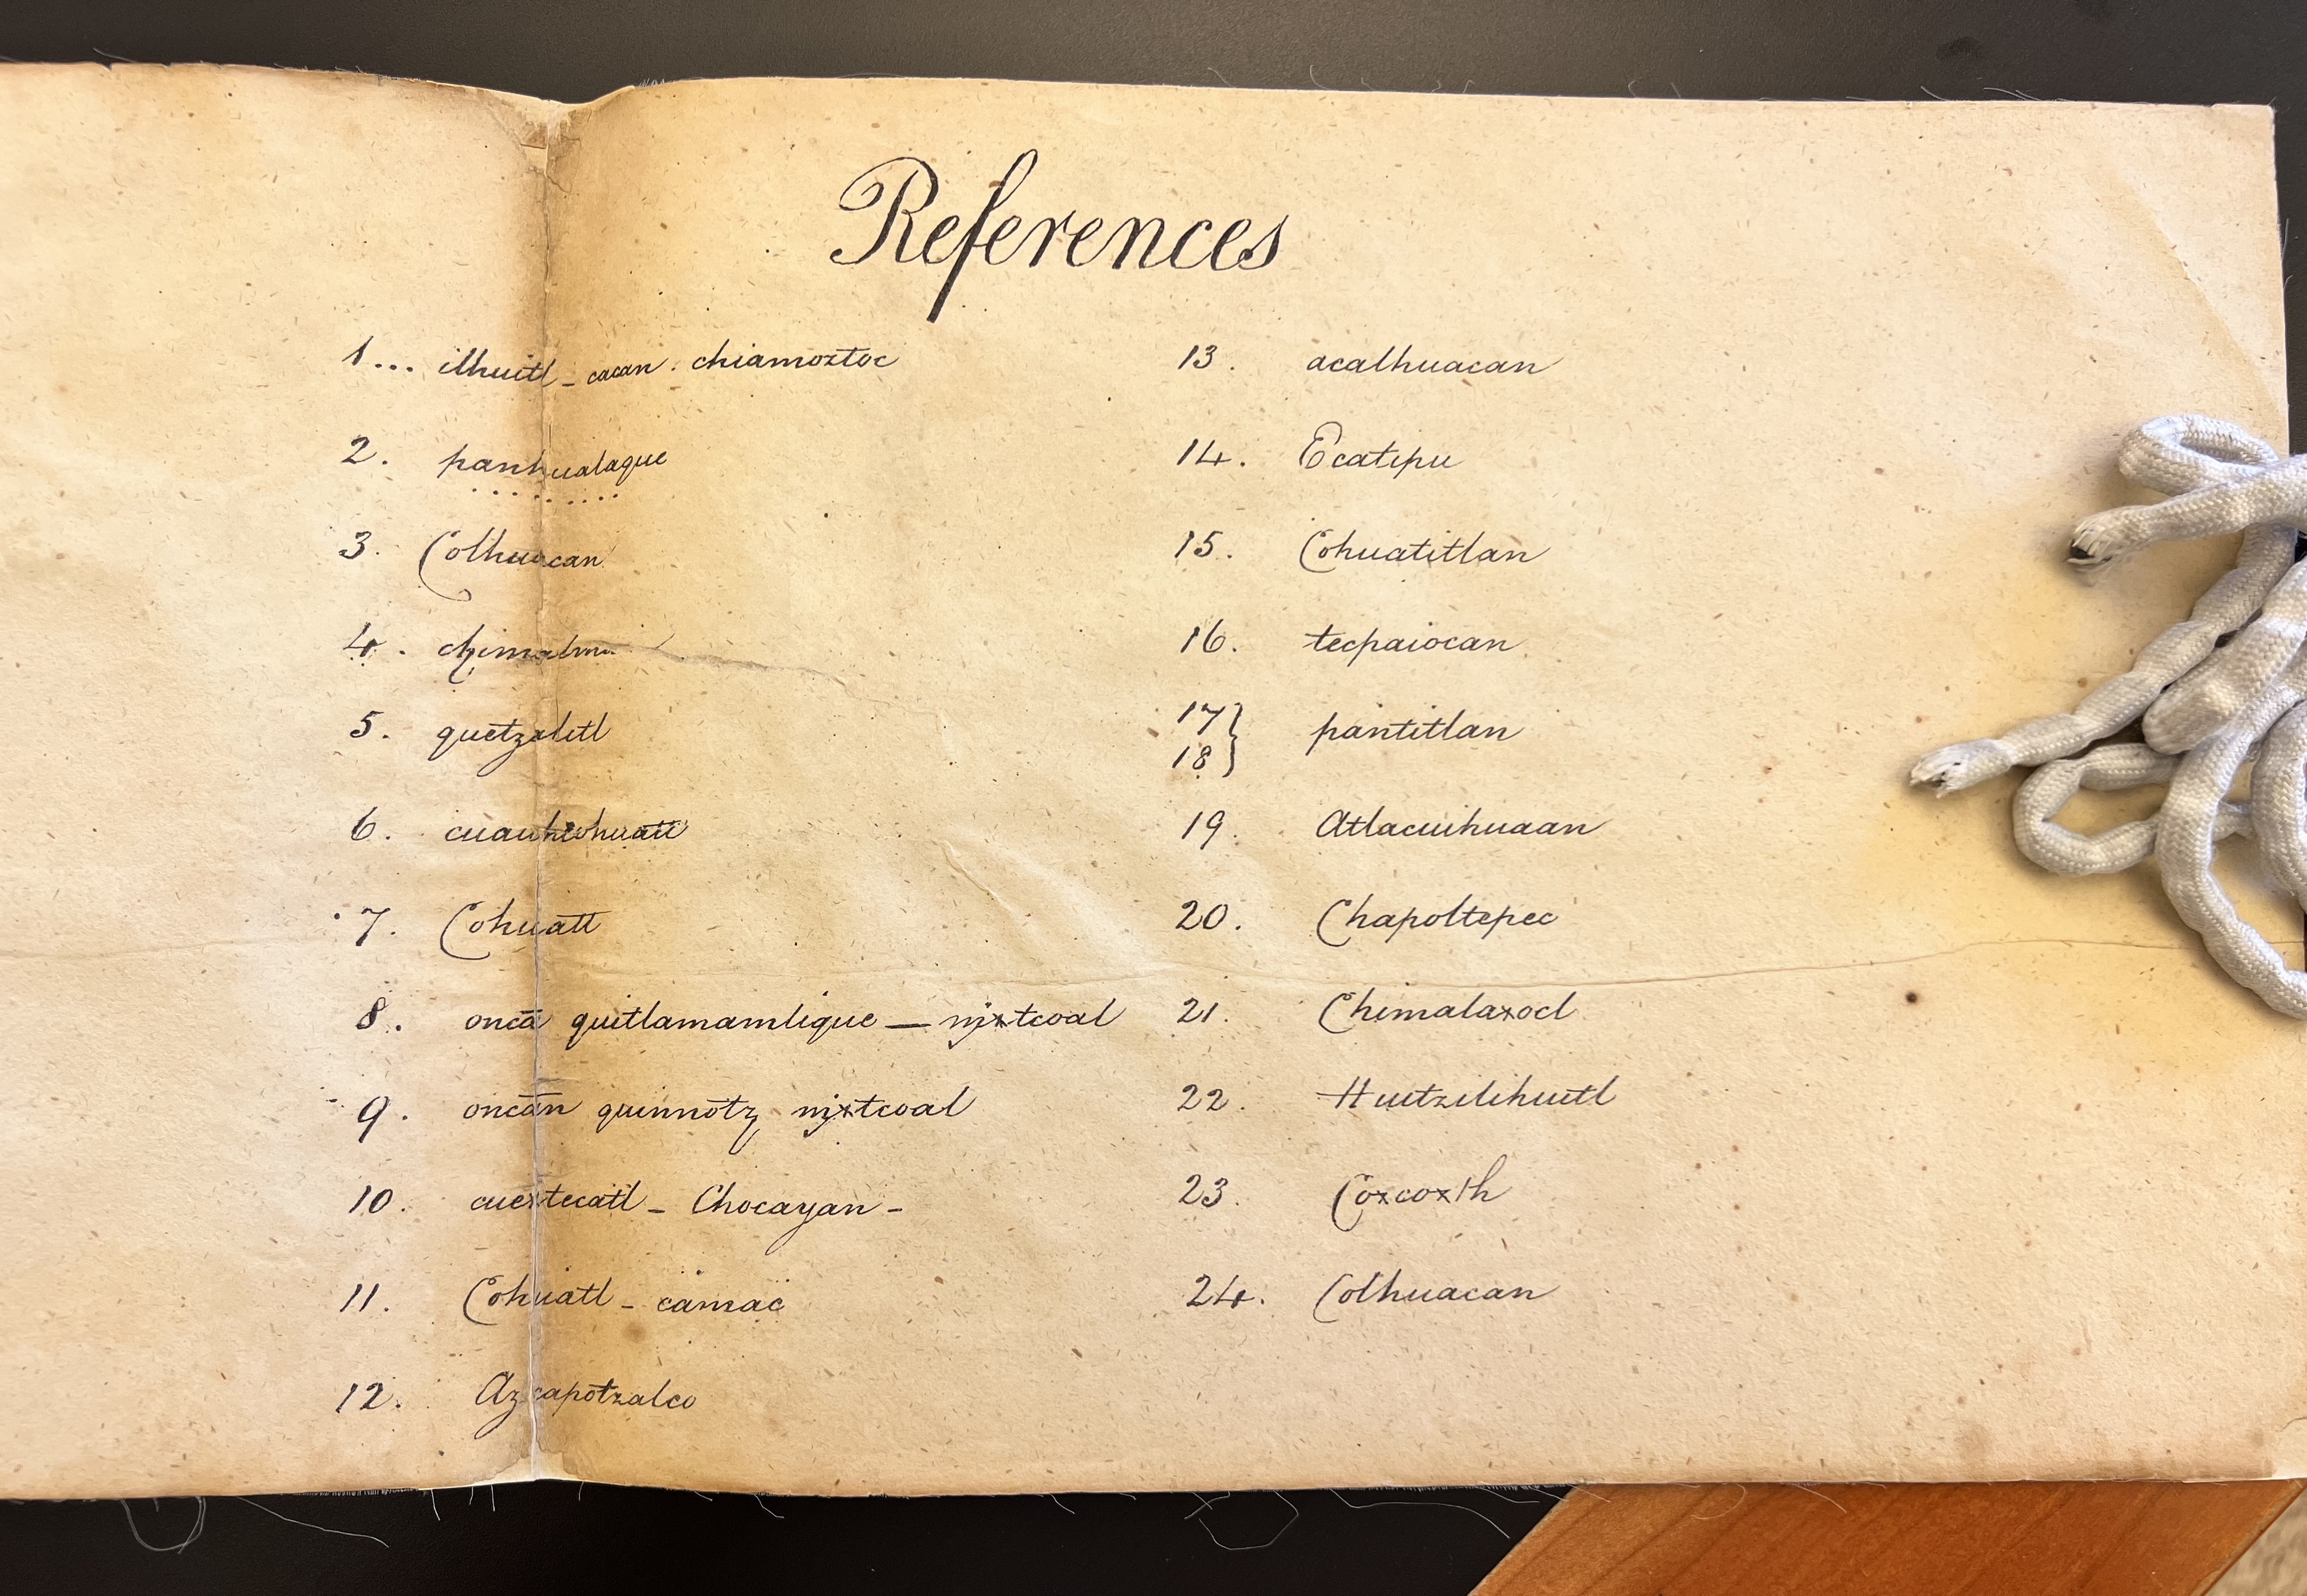 References
1... ilhuitl - cacan. chiamoztoc
2. panhualaque
3. Colhuacan
4. chimalma
5. quetzalitl
6. cuauhcohuatt
7. Cohuatt
8. oncā quitlamamlique — mixtcoal
9. oncān quinnotz mixtcoal
10. cuextecatl - Chocayan -
11. Cohuatl - camac
12. Azcapotzalco
13. acalhuacan
14. Ecatipu
15. Cohuatitlan
16. tecpaiocan
17 } pantitlan
18 }
19. Atlacuihuaan
20. Chapoltepec
21. Chimalaxocl
22. Huitzilihuitl
23. Coxcoxth
24. Colhuacan